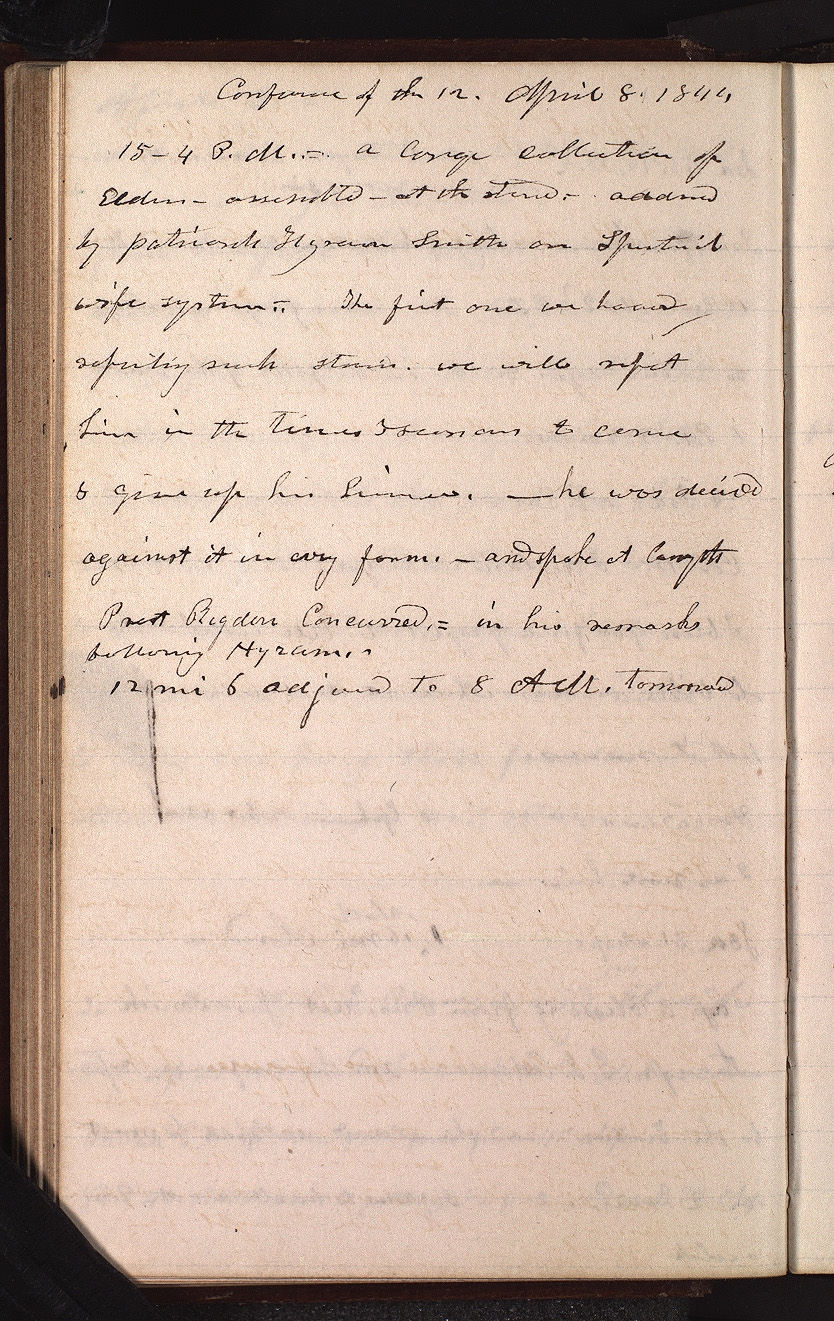 Conference of the 12. April 8. 1844
15-4 P.M.= a large collection of
Elders - assembled - at the stand. addressd
by patriarch Hyrum Smith on Spiritual
wife system= The first one we heard
reporting such stories. we will report
him in the Times & Seasons to come
& give up his license. - he was decided
against it in evry form. - and spoke at length
Prest Rigdon Concurred.= in his remarks
following Hyrum.
12 mi 6 adjournd to 8 A.M. tomorrow